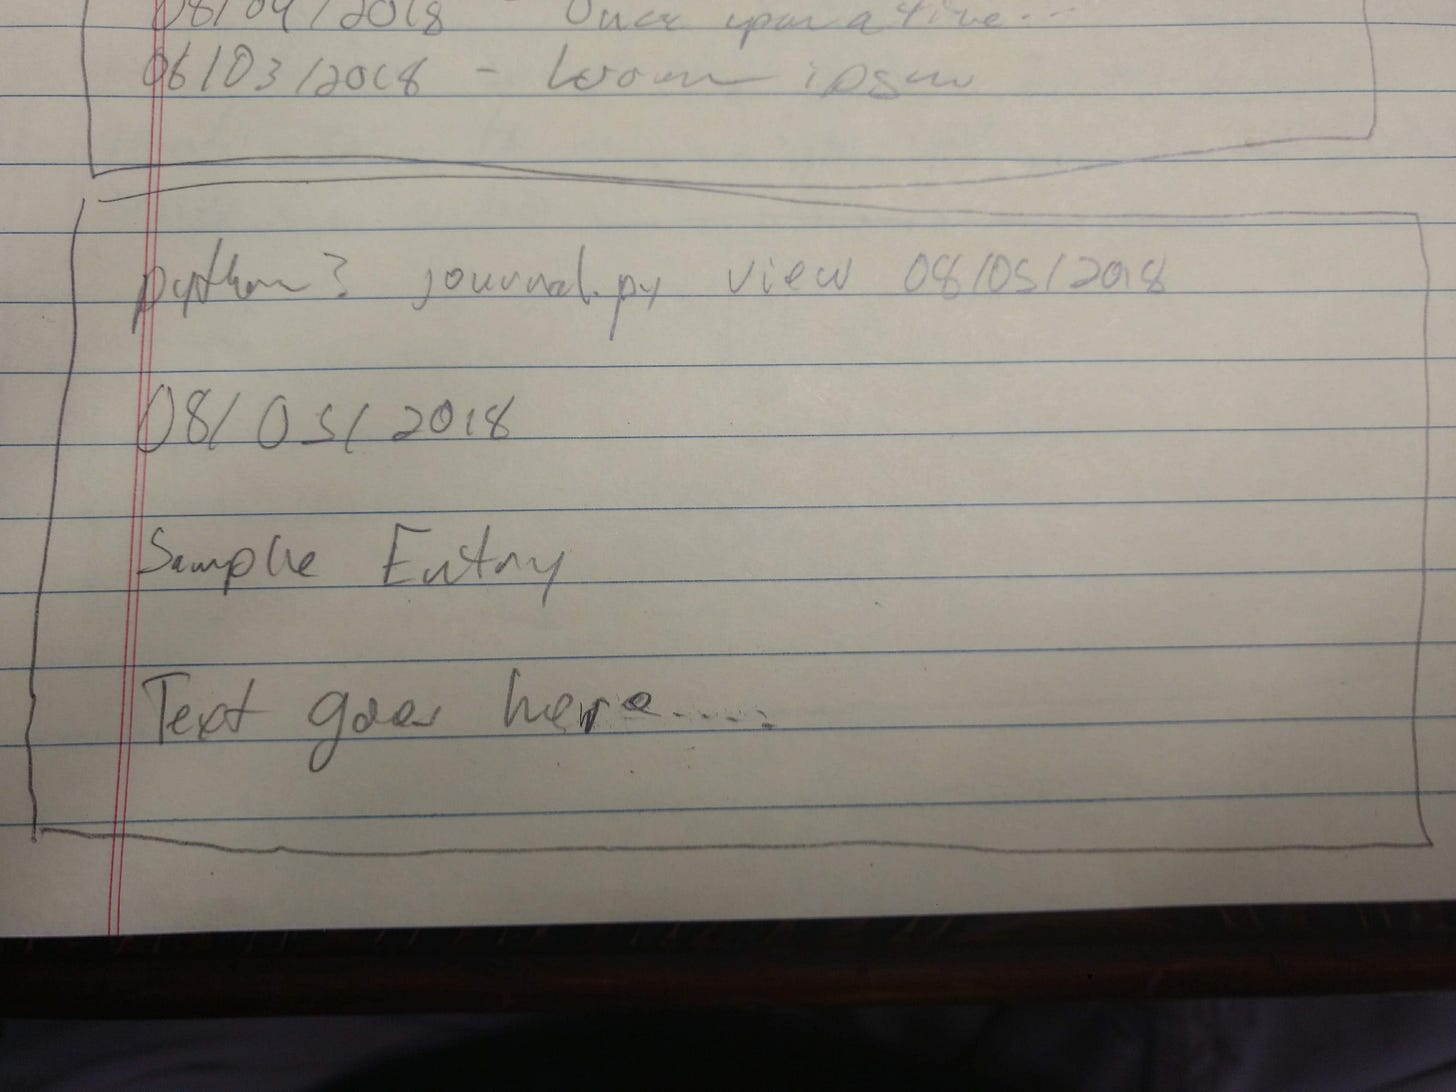 08/04/2018 - Once upon a time...
06/03/2018 - Lorem ipsum
python3 journal.py view 08/05/2018
08/05/2018
Sample Entry
Text goes here.....